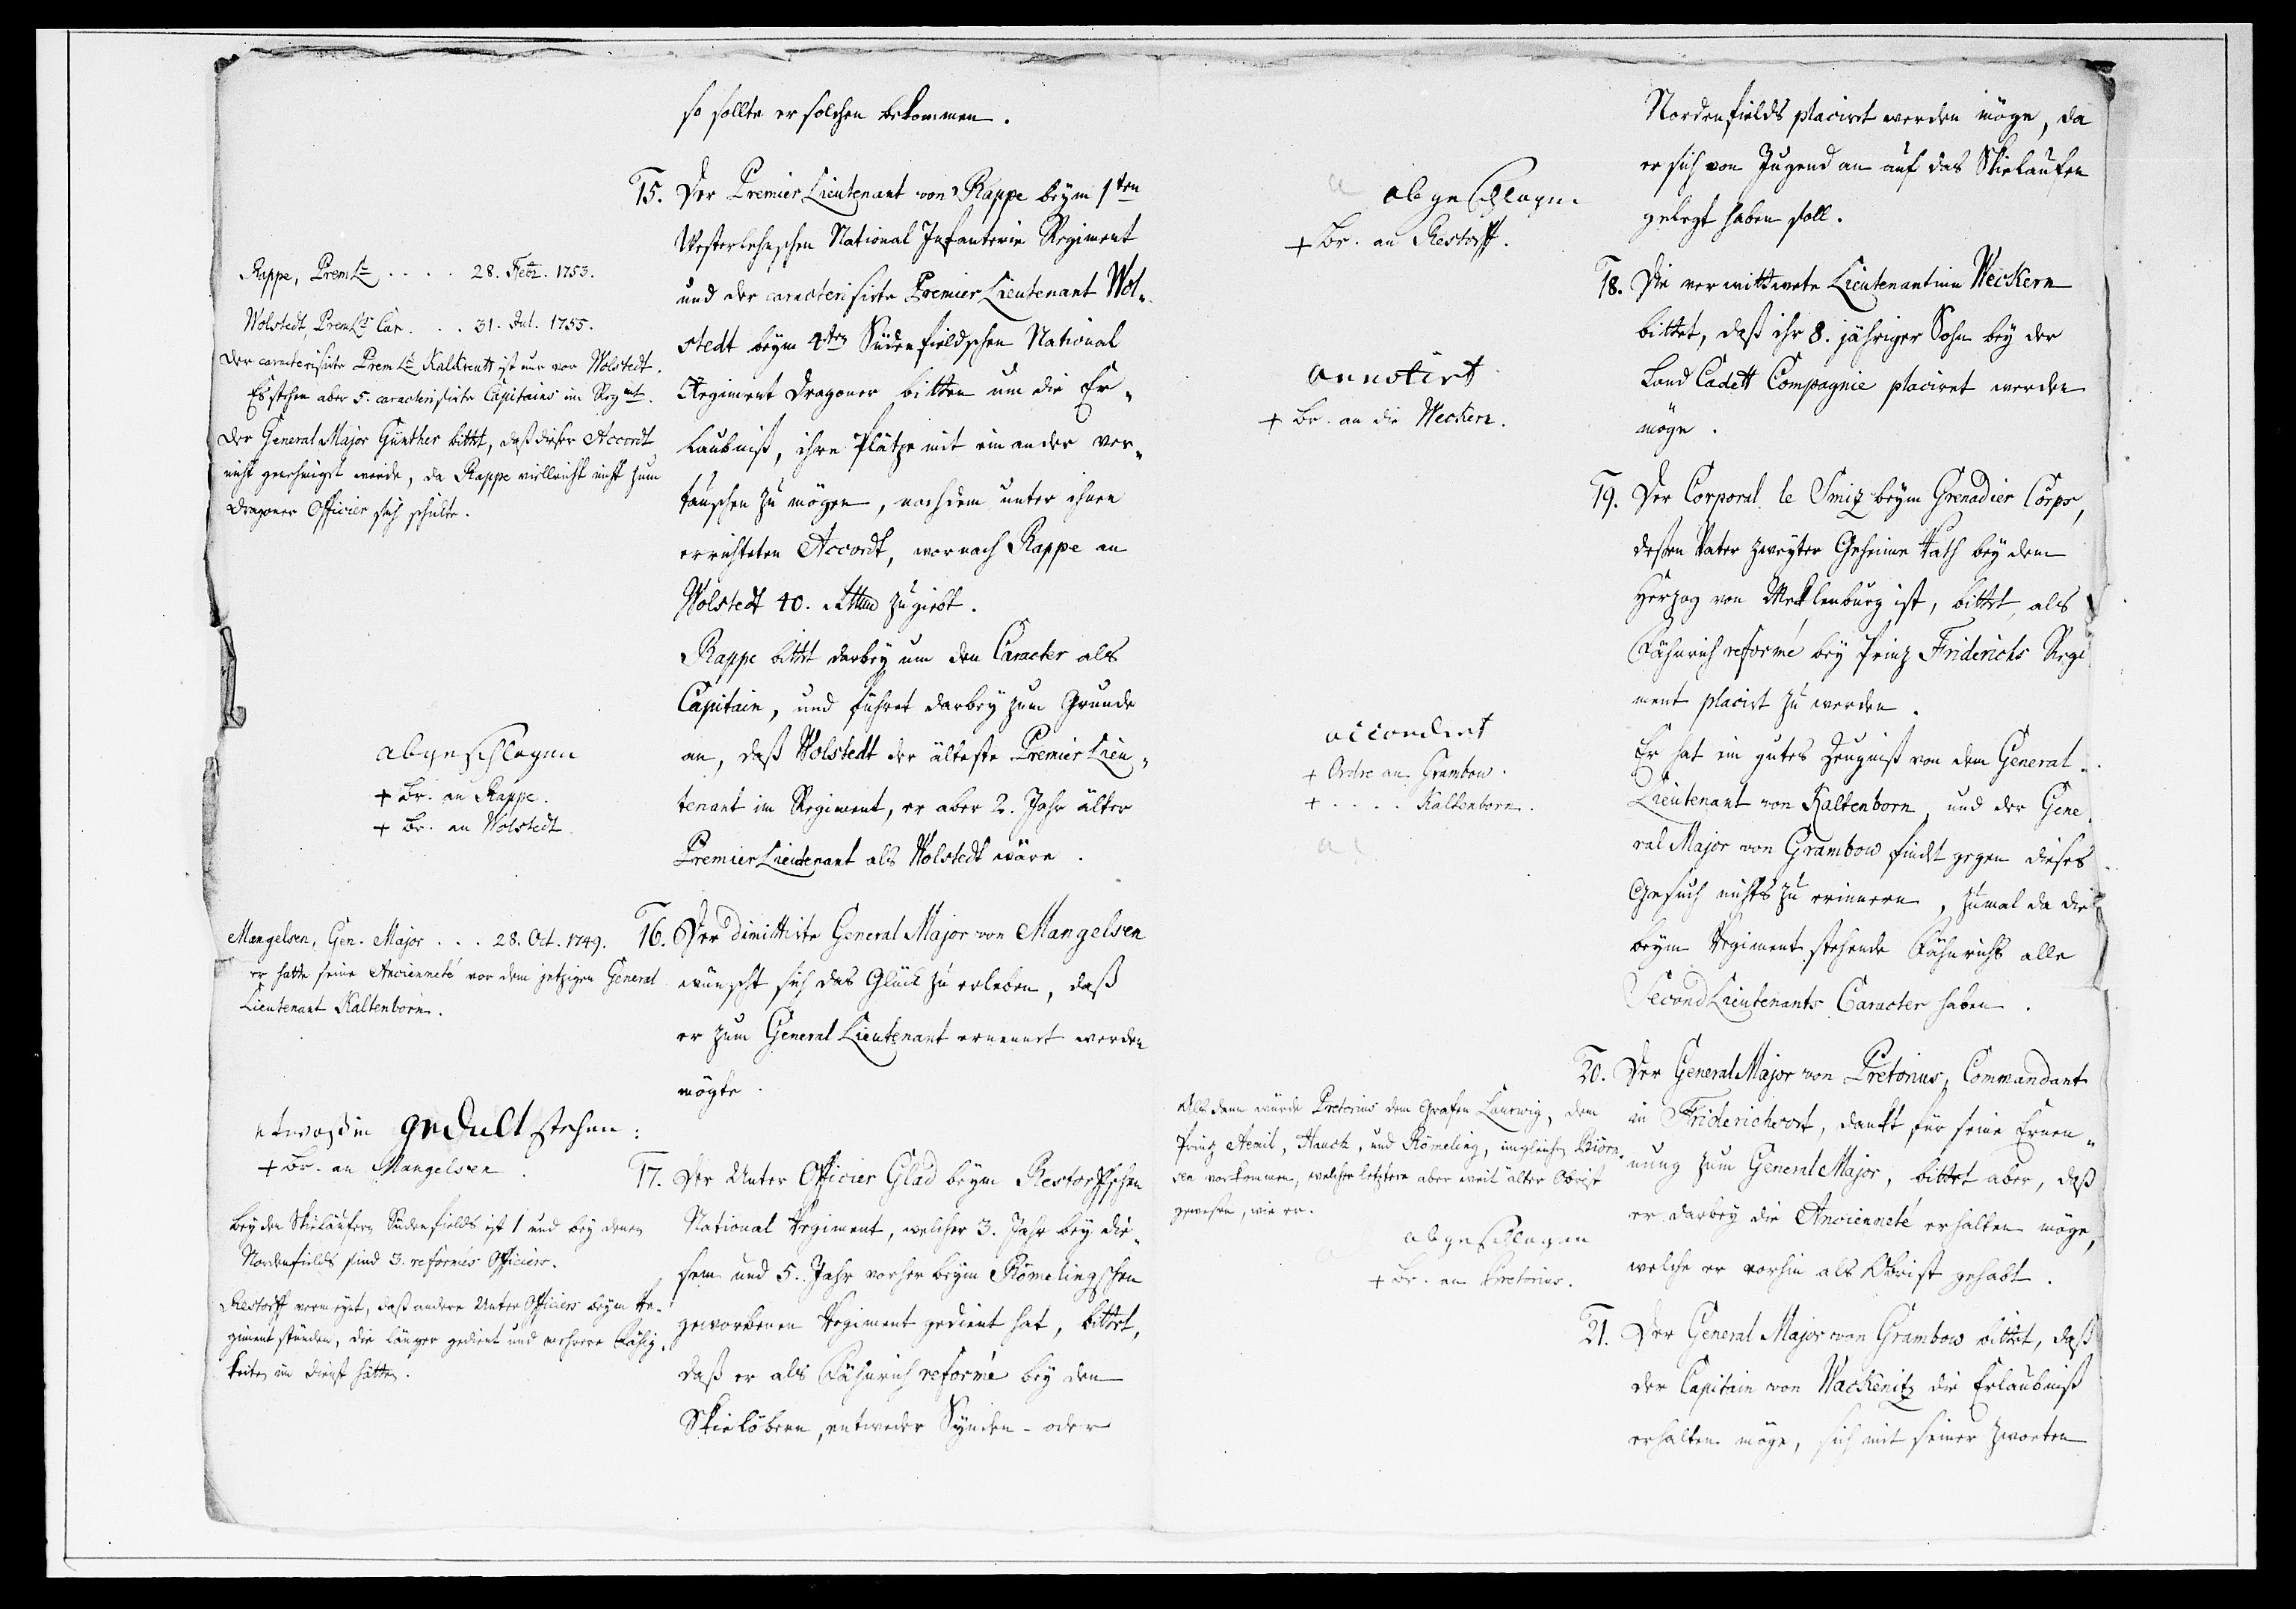 so sollte er solchen bekommen.
15. Der Premier Lieutenant von Rappe beym 1ten
Westerlehnschen National Infanterie Regiment
und der caracterisirte Premier Lieutenant Wol„
stedt beym 4ten Südenfieldschen National
Regiment Dragoner bitten um die Er„
laubniß, ihre Plätze mit einander ver„
tauschen zu mögen, nach dem unter ihnen
errichteten Accordt, wornach Rappe an
Wolstedt 40. zugiebt.
Rappe bittet darbey um den Caracter als
Capitain, und führet darbey zum Grunde
an, daß Wolstedt der älteste Premier Lieu„
tenant im Regiment, er aber 2. Jahr älter
Premier Lieutenant als Wolstedt wäre.
Rappe, Prem Lt . . . . 28. Febr. 1753.
Wolstedt, Prem Lts Car. . . . 31. Jul. 1755.
Der caracterisirte Prem Lt Kalkreutz ist nur vor Wolstedt.
Es stehen aber 5. caracterisirte Capitains im Regmt.
Der General Major Günther bittet, daß dieser Accordt
nicht genehmigt werde, da Rappe vielleicht nicht zum
Dragoner Officier sich schickte.
abgeschlagen
+ Br. an Rappe.
+ Br. an Wolstedt.
16. Der dimittirte General Major von Mangelsen
wünscht sich das Glück zu erleben, daß
er zum General Lieutenant ernennet werden
mögte.
Mangelsen, Gen. Major . . . 28. Oct. 1749.
er hatte seine Ancienneté vor dem jetzigen General
Lieutenant Kaltenborn.
etwaß in gedult stehen:
+ Br. an Mangelsen.
17. Der Unter Officier Glad beym Restorffschen
National Regiment, welcher 3. Jahr bey die„
sem und 5. Jahr vorher beym Römelingschen
geworbenen Regiment gedient hat, bittet,
daß er als Fähnrich reformé bey den
Skielöbern, entweder Synden- oder
bey den Skieläufern Südenfields ist 1 und bey denen
Nordenfields sind 3. reformés Officiers.
Restorff vermeynt, daß andere Unter Officiers beym Re„
giment stünden, die länger gedient und mehrere Fähig„
keiten im Dienst hätten.
Nordenfields placiret werden möge, da
er sich von Jugend an auf das Skielaufen
gelegt haben soll.
abgeschlagen
+ Br. an Restorff.
18. Die verwittwete Lieutenantinn Weckern
bittet, daß ihr 8. jähriger Sohn bey der
Land Cadett Compagnie placiret werden
möge.
annotirt
+ Br. an die Weckern.
19. Der Corporal le Smiz beym Grenadier Corps,
deßen Vater zweyter Geheime Rath bey dem
Herzog von Mecklenburg ist, bittet, als
Fähnrich reformé bey Prinz Friderichs Regi
ment placirt zu werden.
Er hat ein gutes Zeugniß von dem General„
Lieutenant von Kaltenborn, und der Gene„
ral Major von Grambow findet gegen dieses
Gesuch nichts zu erinnern, zumal da die
beym Regiment stehende Fähnrichs alle
Second Lieutenants Caracter haben.
accordirt
+ Ordre an Grambow.
+ . . . . Kaltenborn.
20. Der General Major von Pretorius, Commandant
in Friderichsort, dankt für seine Ernen„
nung zum General Major, bittet aber, daß
er darbey die Ancienneté erhalten möge,
welche er vorhin als Obrist gehabt.
Als dann würde Pretorius dem Grafen Laurwig, dem
Prinz Aemil, Hauch, und Römeling, imgleichen Biörn„
sen vorkommen, welcher letztere aber weit älter Obrist
gewesen, wie er.
abgeschlagen
+ Br. an Pretorius.
21. Der General Major von Grambow bittet, daß
der Capitain von Wackenitz die Erlaubniß
erhalten möge, sich mit seiner zwoten